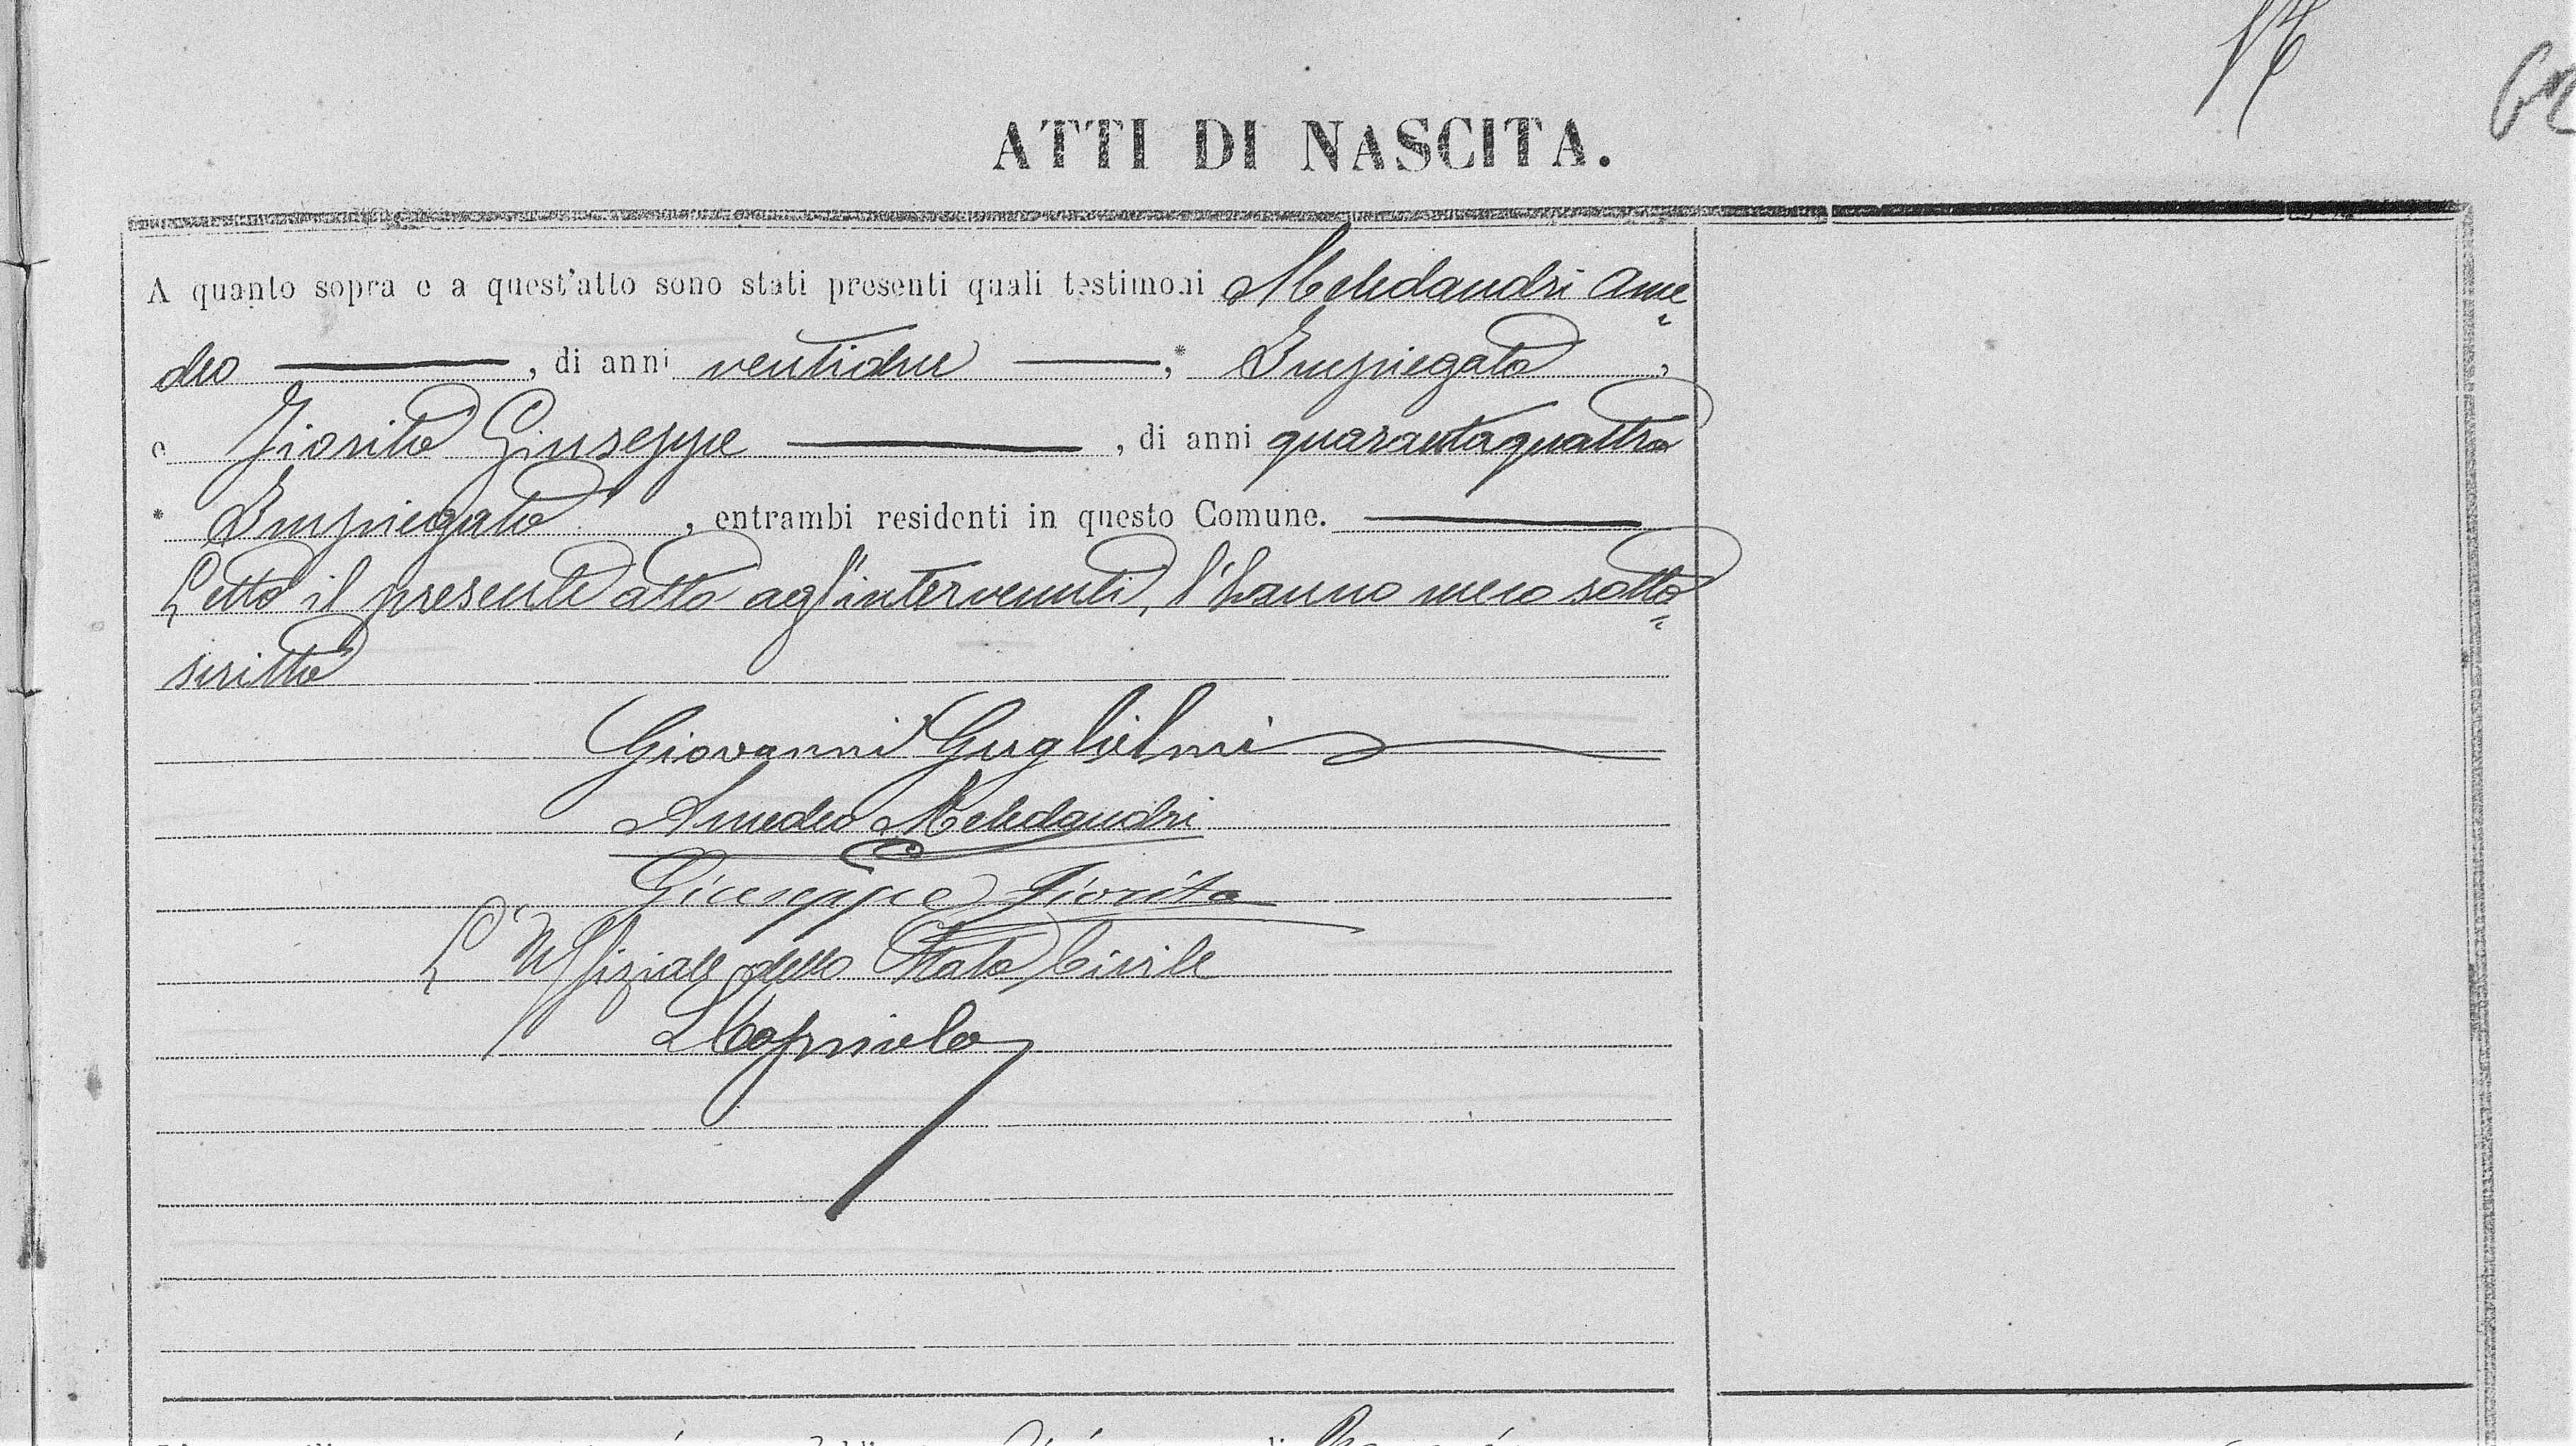 ATTI DI NASCITA.
A quanto sopra e a quest'atto sono stati presenti quali testimoni Meledandri Ame=
deo , di anni ventidue , * Impiegato ,
e Fiorito Giuseppe , di anni quarantaquattro
* Impiegato , entrambi residenti in questo Comune.
Letto il presente atto agl'intervenuti, l'hanno meco sotto=
scritto
Giovanni Guglielmi
Amedeo Meledandri
Giuseppe Fiorito
L'Uffiziale dello Stato Civile